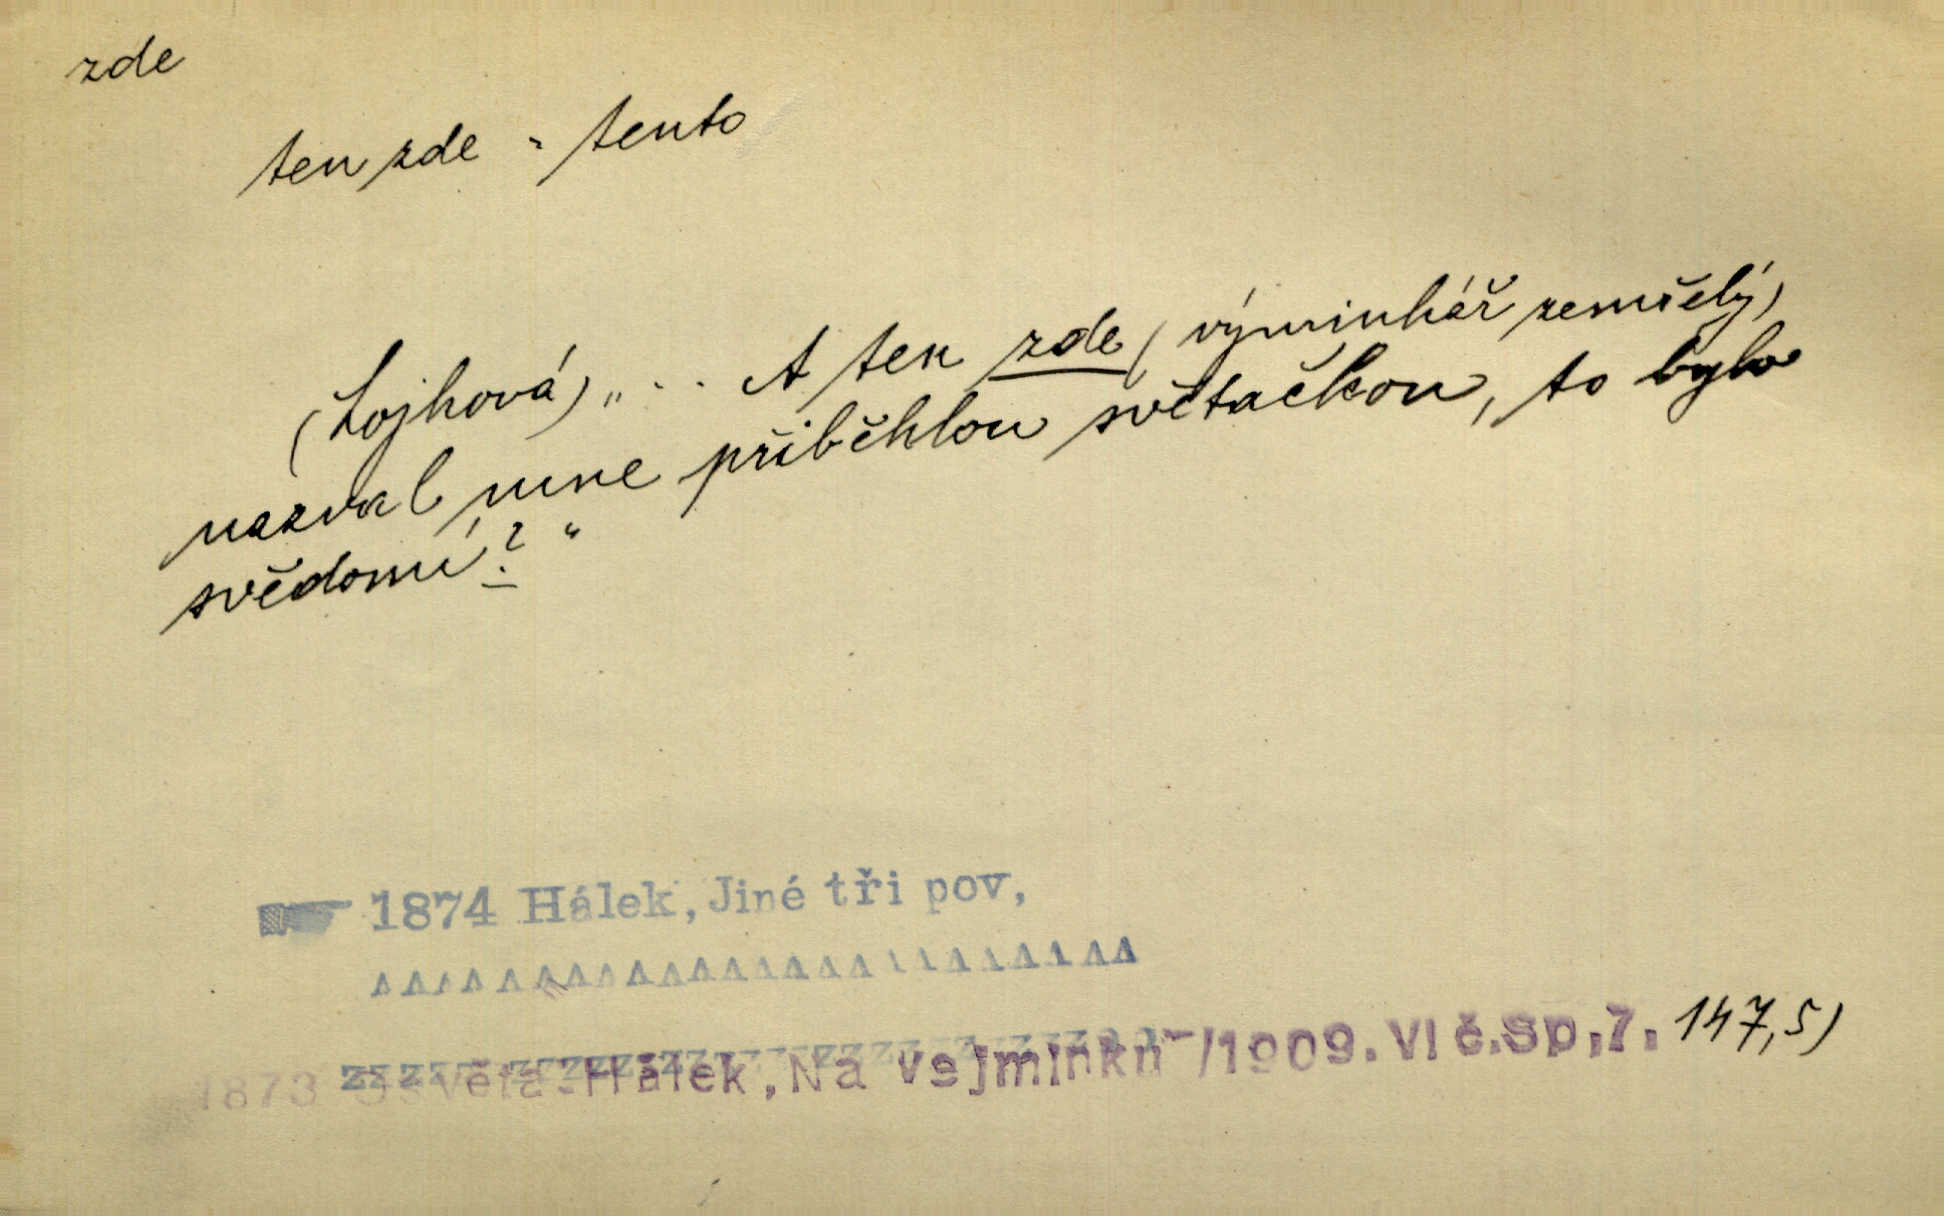 zde
ten zde = tento
(Lojhová) „... A ten zde (výminkář zemřelý)
nazval mne přiběhlou světačkou, to bylo
svědomí? “
1874 Hálek, Jiné tři pov,
1873 Osvěta-Hálek, Na vejminku /1909. Vl č. Sp. 7. 147,5)